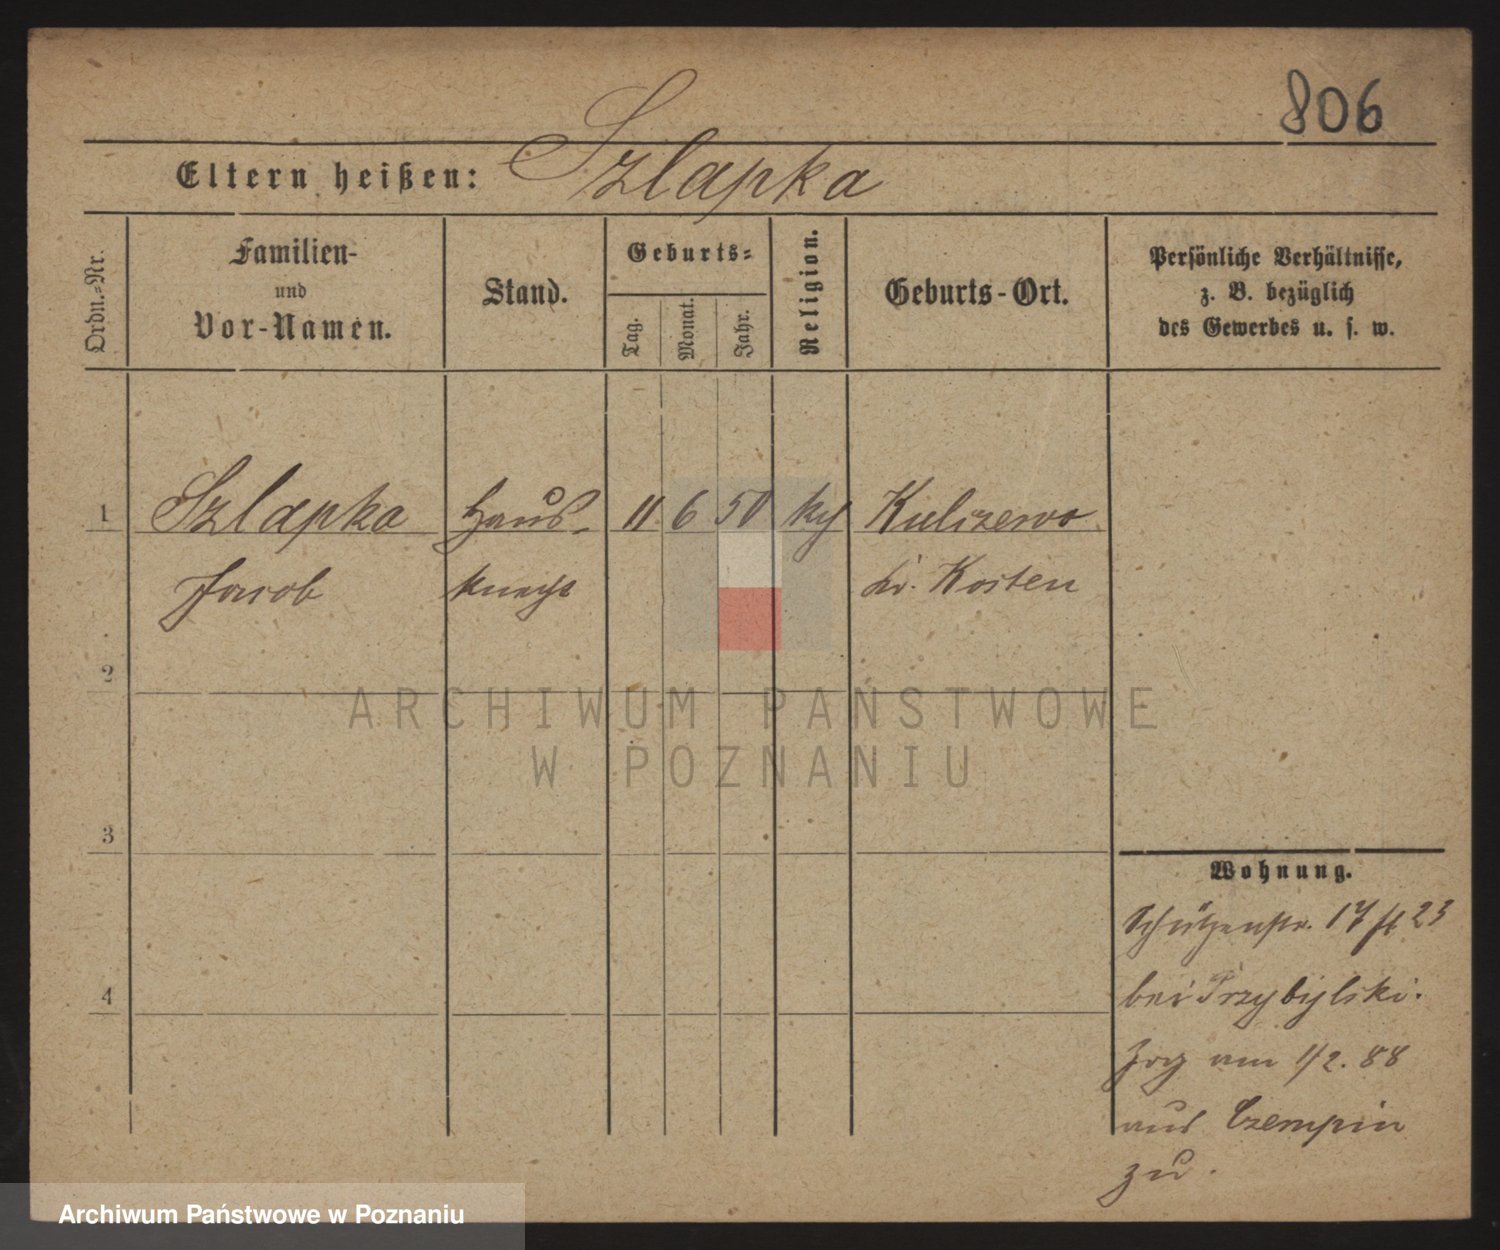 806
Eltern heißen: Szlapka
Ordn.-Nr.
Familien-
und
Vor-Namen.
Stand.
Geburts-
Tag.
Monat.
Jahr.
Religion.
Geburts-Ort.
Persönliche Verhältnisse,
z. B. bezüglich
des Gewerbes u. s. w.
1 Szlapka Haus- 11 6 50 Kulizewo
Jacob knecht Kr. Kosten
2
3
4
Wohnung.
Schützenstr. 17 23
bei Przybylski.
Zog am 1/2. 88
aus Czempin
zu.
ARCHIWUM PAŃSTWOWE
W POZNANIU
Archiwum Państwowe w Poznaniu